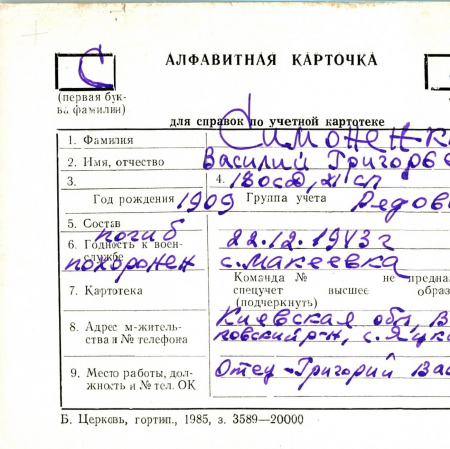 С
АЛФАВИТНАЯ КАРТОЧКА
(первая бук-
ва фамилии)
для справок по учетной картотеке
1. Фамилия Симоненк
2. Имя, отчество Василий Григорье
3. 4. 180 сд, 21 сп
Год рождения 1909 Группа учета Рядово
5. Состав погиб
6. Годность к воен-
службе похоронен
22.12.1943 г
с. Макеевка
Команда № не предна
7. Картотека спецучет высшее образ
(подчеркнуть)
8. Адрес м-житель-
ства и № телефона
Киевская обл, В
ковский р-н, с. Яцк
9. Место работы, дол-
жность и № тел. ОК
Отец - Григорий Вас
Б. Церковь, гортип., 1985, з. 3589—20000